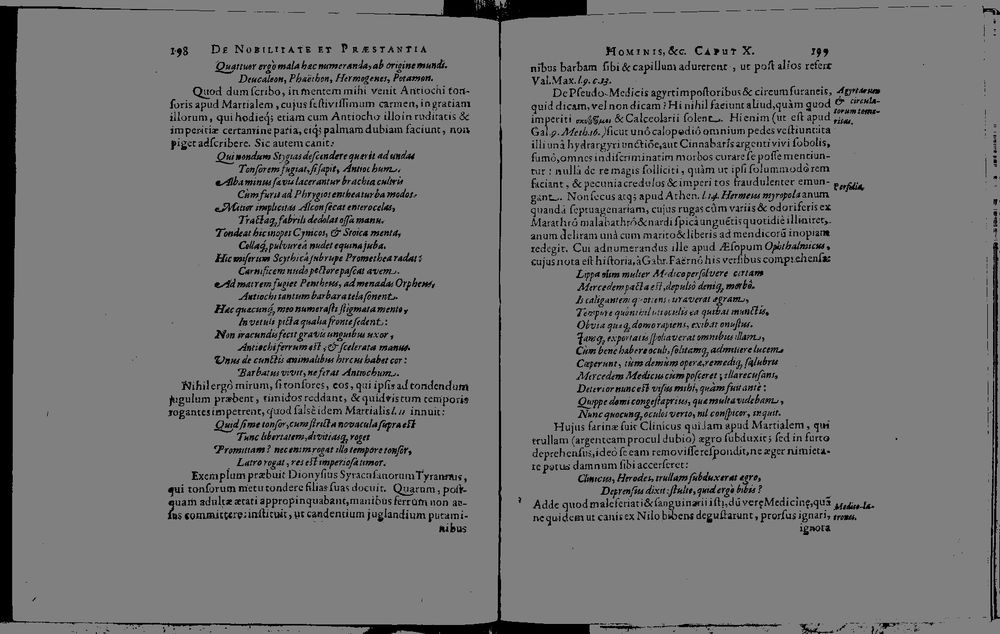 198 DE NOBILITATE ET PRÆSTANTIA
Quattuor ergò mala hæc numeranda, ab origine mundi.
Deucaleon, Phaëthon, Hermogenes, Petamon.
Quod dum scribo, in mentem mihi venit Antiochi ton-
soris apud Martialem, cujus festivissimum carmen, in gratiam
illorum, qui hodieq; etiam cum Antiocho illo in ruditatis &
imperitiæ certamine paria, eiq; palmam dubiam faciunt, non
piget adscribere. Sic autem canit:
Qui nondum Stygias descendere querit ad undas
Tonsorem fugiat, si sapit, Antiochum.
Alba minus sævis lacerantur brachia cultris
Cùm furit ad Phrygios enthea turba modos.
Mitior implicitas Alcon secat enterocelas,
Tractaq; fabrili dedolat ossa manu.
Tondeat hic inopes Cynicos, & Stoica menta,
Collaq; pulvureâ nudet equina juba.
Hic miserum Scythicâ sub rupe Promethea radat:
Carnificem nudo pectore pascat avem.
Ad matrem fugiet Pentheus, ad menadas Orpheus,
Antiochi tantum barbara tela sonent.
Hæc quæcunq; meo numerastis stigmata mento,
In vetuli picta qualia fronte sedent:
Non iracundis fecit gravis unguibus uxor,
Antiochi ferrum est, & scelerata manus.
Unus de cunctis animalibus hircus habet cor:
Barbatus vivit, ne ferat Antiochum.
Nihil ergò mirum, si tonsores, eos, qui ipsis ad tondendum
jugulum præbent, timidos reddant, & quidvis tum temporis
rogantes impetrent, quod salsè idem Martialis l. 11 innuit:
Quid si me tonsor, cum stricta novacula supra est
Tunc libertatem, divitiasq; roget
Promittam? nec enim rogat illo tempore tonsor,
Latro rogat, res est imperiosa timor.
Exemplum præbuit Dionysius Syracusanorum Tyrannus,
qui tonsorum metu tondere filias suas docuit. Quarum, post-
quam adultæ ætati appropinquabant, manibus ferrum non au-
sus committere: instituit, ut candentium juglandium putami-
nibus
HOMINIS, &c. CAPUT X. 199
nibus barbam sibi & capillum adurerent, ut post alios refert
Val. Max. l. 9. c. 13.
De Pseudo-Medicis agyrtis impostoribus & circumforaneis,
quid dicam, vel non dicam? Hi nihil faciunt aliud, quàm quod
imperiti & Calceolarii solent. Hi enim (ut est apud
Gal. 9. Meth. 16.) sicut unô calopodiô omnium pedes vestiunt ita
illi unâ hydrargyri unctiôe, aut Cinnabaris argenti vivi sobolis,
fumô, omnes indiscriminatim morbos curare se posse mentiun-
tur: nullâ de re magis solliciti, quàm ut ipsi solummodò rem
faciant, & pecuniâ credulos & imperitos fraudulenter emun-
gant. Non secus atq; apud Athen. l. 14. Hermeus myropols anum
quandã septuagenariam, cujus rugas cùm variis & odoriferis ex
Marathrô malabathrô & nardi spicâ unguẽtis quotidiè illinitet,
anum deliram unà cum marito & liberis ad mendicorũ inopiam
redegit. Cui adnumerandus ille apud Æsopum Ophthalmicus,
cujus nota est historia, à Gabr. Faërnô his versibus comprehensa:
Lippa olim mulier Medico persolvere certam
Mercedem pacta est, depulso deniq; morbo.
Is caligantem quotiens juraverat ægram,
Tempore quo nihil uti oculis ea quibat inunctis,
Obvia quæq; domo rapiens, exibat onustus.
Jamq; exportatis spoliaverat omnibus illam,
Cùm bene habere oculi, solitamq; admittere lucem
Cæperunt, tum demùm opera, remediiq; salubris
Mercedem Medicus cùm posceret; illa recusans,
Deterior nunc est visus mihi, quàm fuit antè:
Quippe domi congesta prius, quæ multa videbam,
Nunc quocunq; oculos verto, nil conspicor, inquit.
Hujus farinæ fuit Clinicus quidam apud Martialem, qui
trullam (argenteam procul dubio) ægro subduxit; sed in furto
deprehensus, ideò se eam removisse respondit, ne æger nimieta-
te potus damnum sibi accerseret:
Clinicus, Herodes, trullam subduxerat ægro,
Deprensus dixit: stulte, quid ergo bibis?
Adde quod malè seriati & sanguinarii isti, dũ verę Medicinę, quã
ne quidem ut canis ex Nilo bibens degustarunt, prorsus ignari,
ignota
Agyrtarum
& circula-
torum teme-
ritas.
Perfidia.
Medico-la-
trones.